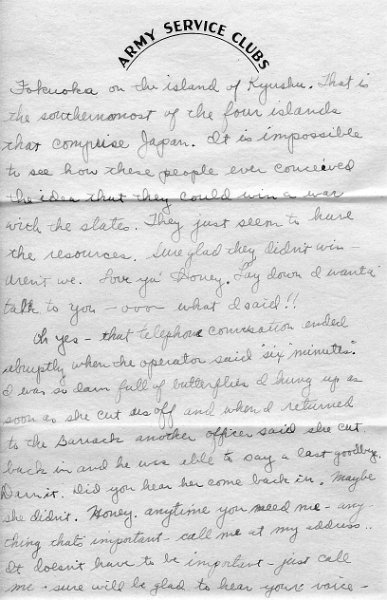 ARMY SERVICE CLUBS
Fokuoka on the island of Kyushu. That is
the southernmost of the four islands
that comprise Japan. It is impossible
to see how these people ever conceived
the idea that they could win a war
with the states. They just seem to have
the resources. Sure glad they didn't win -
aren't we. Love ya' Honey. Lay down I wanta
talk to you - ooo what I said!!
Oh yes - that telephone conversation ended
abruptly when the operator said "six minutes".
I was so darn full of butterflies I hung up as
soon as she cut us off and when I returned
to the Barrack another officer said she cut
back in and he was able to say a last goodbye.
Damit. Did you hear her come back in. Maybe
she didn't. Honey, anytime you need me - any-
thing thats important - call me at my address.
It doesn't have to be important - just call
me - sure will be glad to hear your voice -